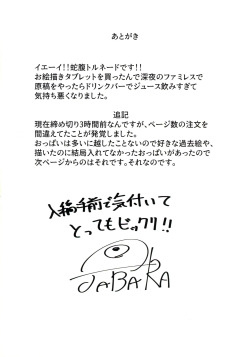 あとがき
イエーイ!!蛇腹トルネードです!!
お絵描きタブレットを買ったんで深夜のファミレスで
原稿をやったらドリンクバーでジュース飲みすぎて
気持ち悪くなりました。
追記
現在締め切り3時間前なんですが、ページ数の注文を
間違えてたことが発覚しました。
おっぱいは多いに越したことないので好きな過去絵や、
描いたのに結局入れてなかったおっぱいがあったので
次ページからはそれです。それなのです。
入稿手前で気付いて
とってもビックリ!!
JABARA